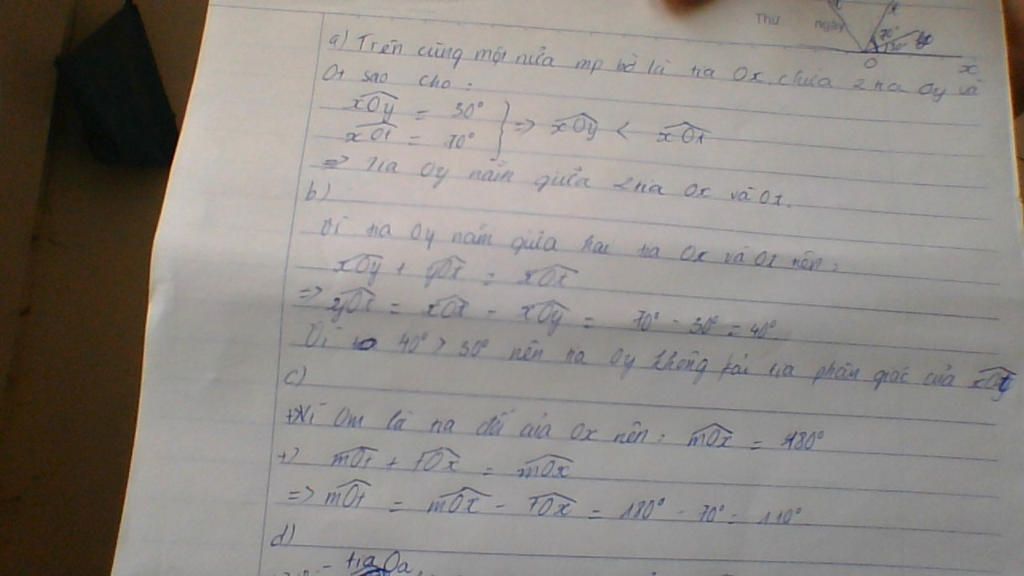 Thứ ngày
t
70°
30°
O
x
a) Trên cùng một nửa mp bờ là tia Ox, chứa 2 tia Oy và
Ot sao cho:
xOy = 30°
xOt = 70° } => xOy < xOt
=> tia Oy nằm giữa 2 tia Ox và Ot.
b)
Vì tia Oy nằm giữa hai tia Ox và Ot nên:
xOy + yOt = xOt
=> yOt = xOt - xOy = 70° - 30° = 40°
Vì 40° > 30° nên tia Oy không phải tia phân giác của xOt
c)
+) Vì Om là tia đối của Ox nên: mOx = 180°
+) mOt + tOx = mOx
=> mOt = mOx - tOx = 180° - 70° = 110°
d)
- tia Oa